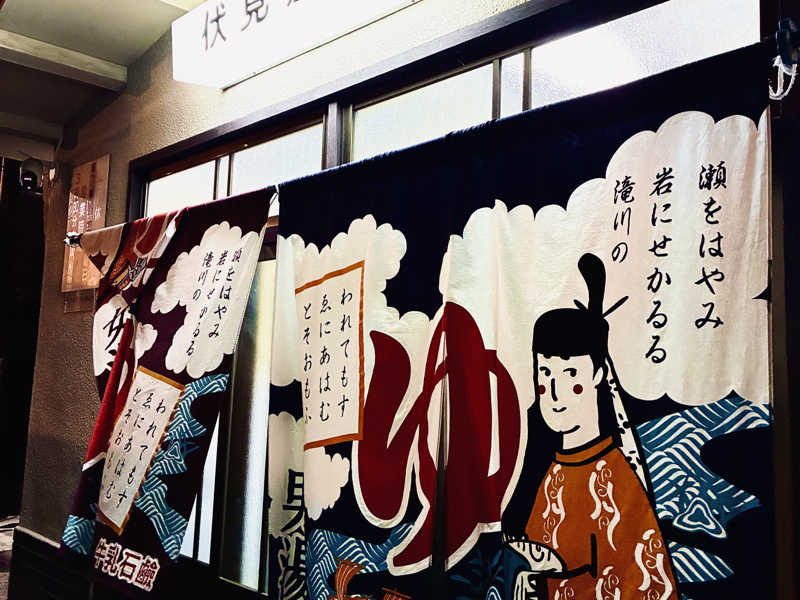 伏見
瀬をはやみ
岩にせかるる
滝川の
われてもす
ゑにあはむ
とそおもふ
ゆ
男湯
瀬をはやみ
岩にせかるる
滝川の
われてもす
ゑにあはむ
とそおもふ
女
牛乳石鹸